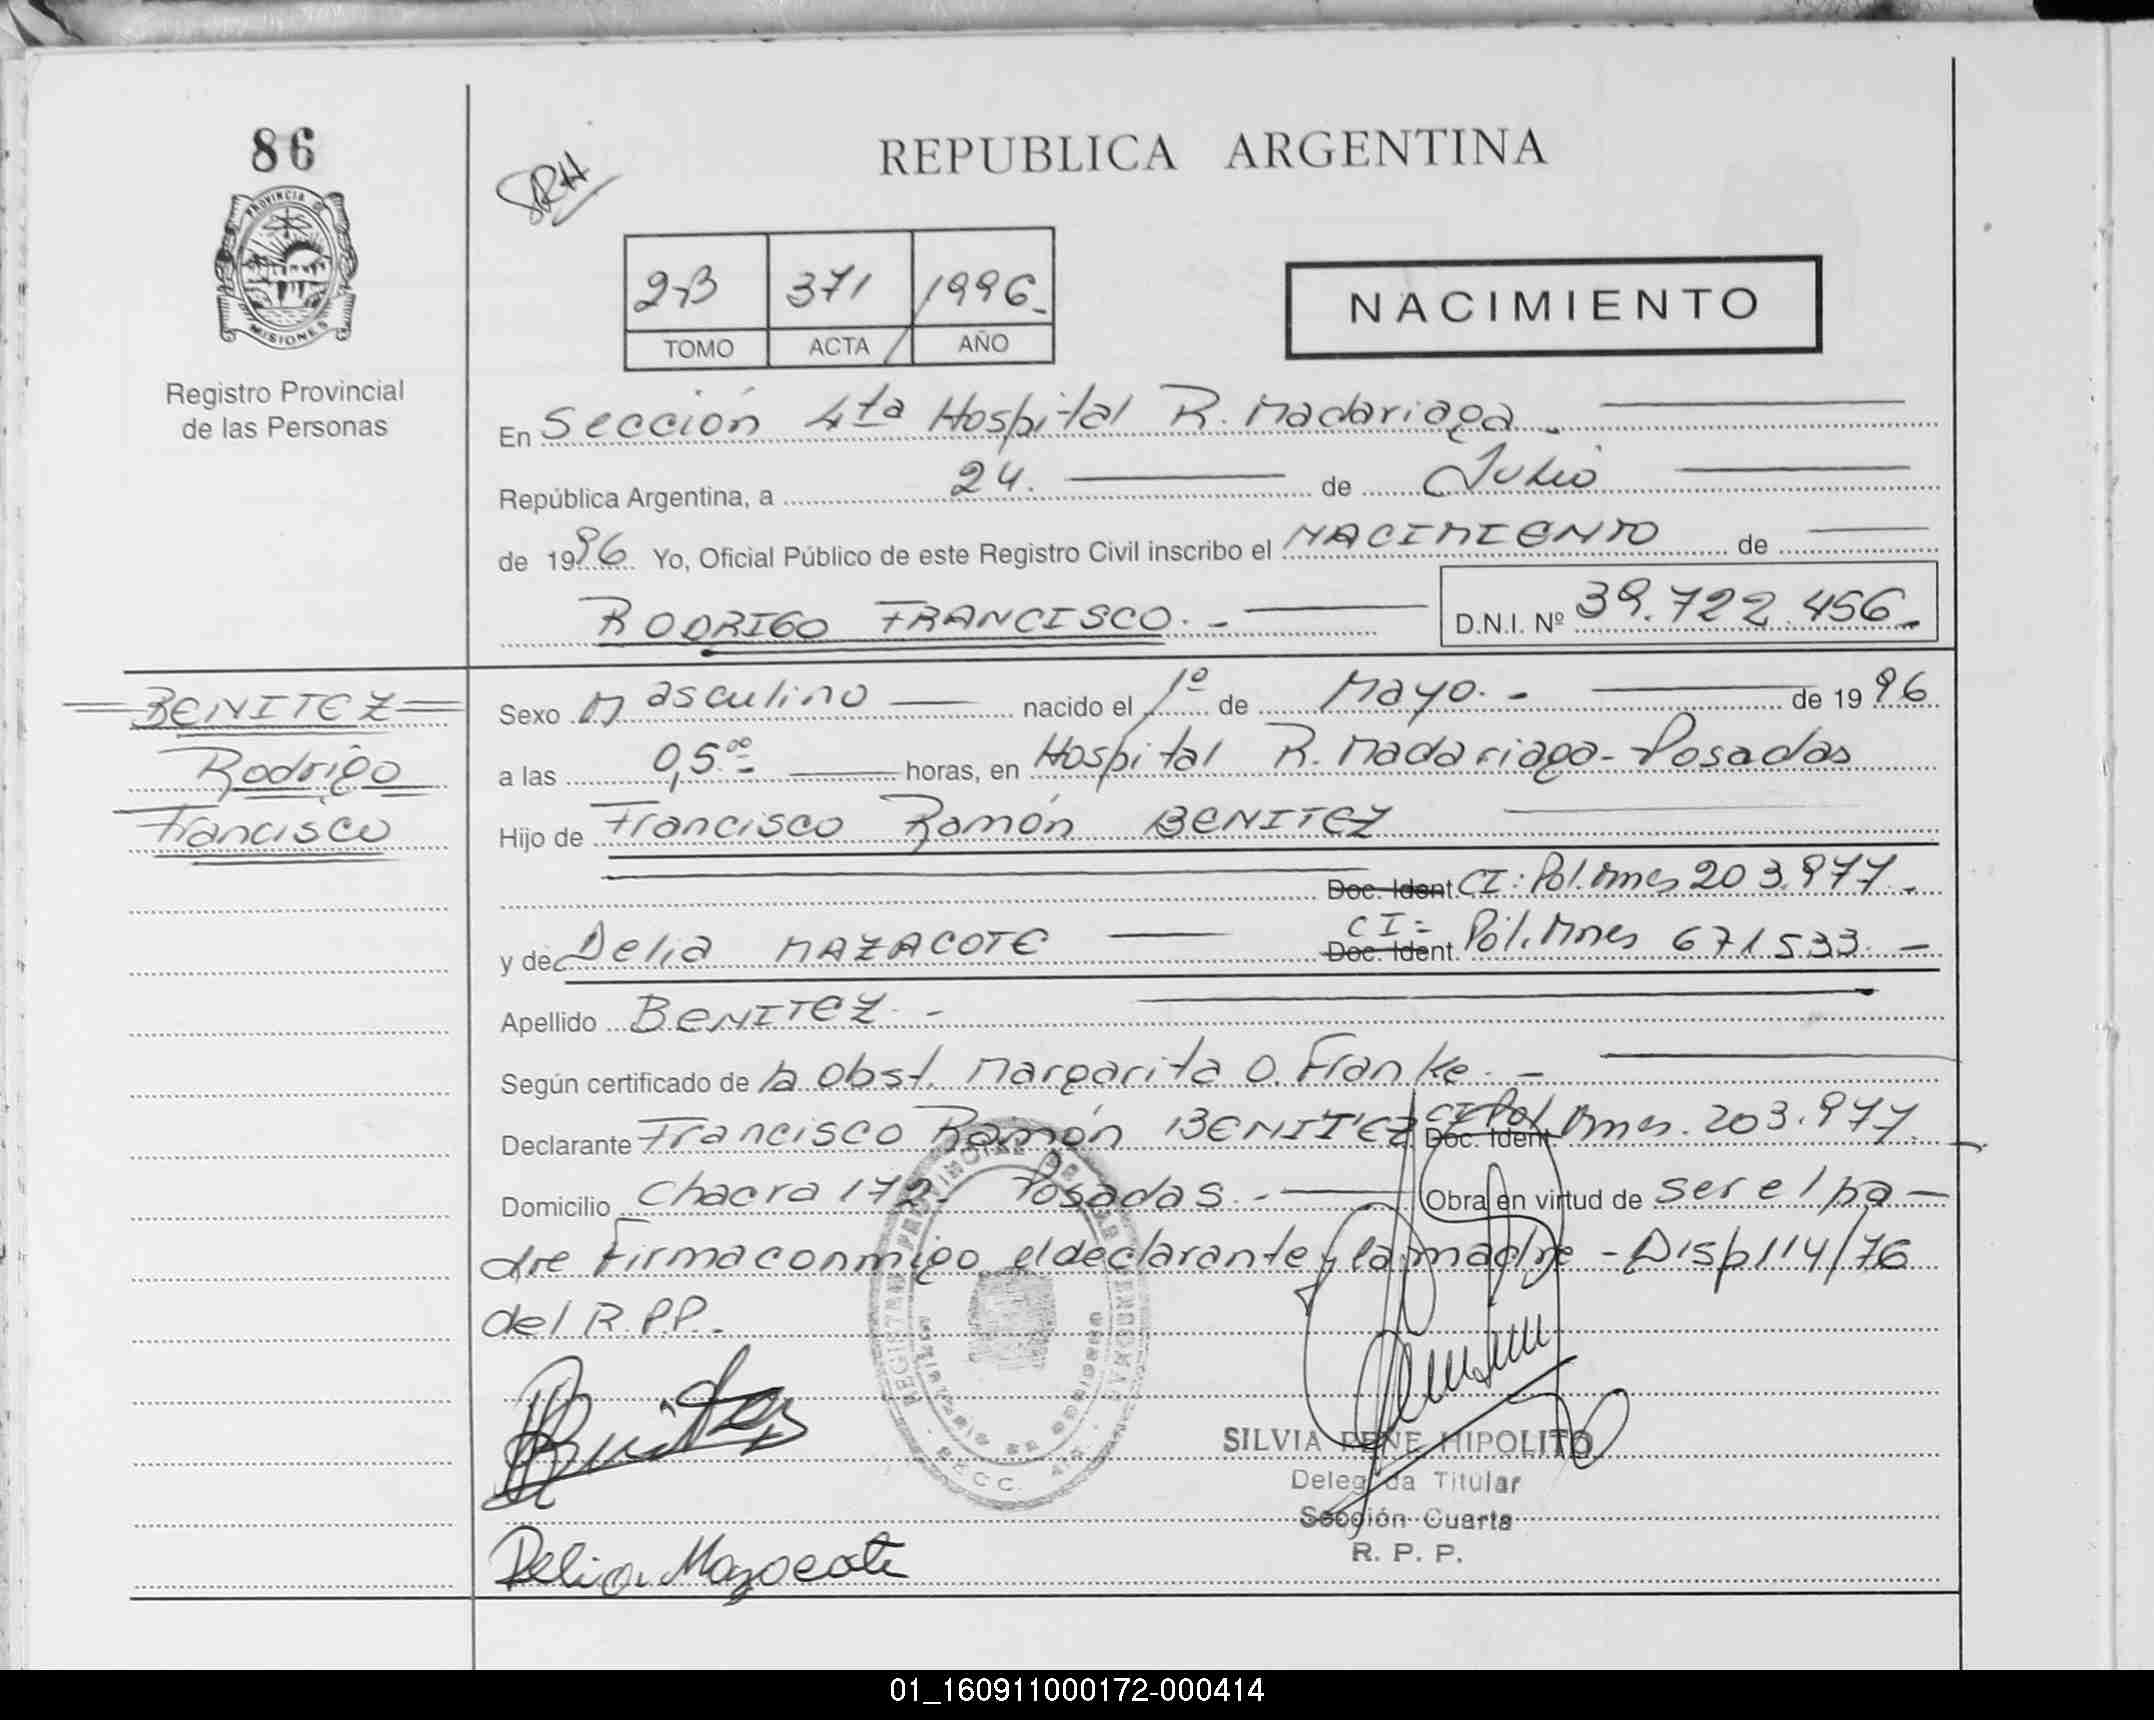 86
REPUBLICA ARGENTINA
SRH
PROVINCIA D
MISIONES
Registro Provincial
de las Personas
2-B 371 1996_
TOMO ACTA AÑO
NACIMIENTO
En Sección 4ta Hospital R. Madariaga.
República Argentina, a 24. de Julio
de 1996 Yo, Oficial Público de este Registro Civil inscribo el NACIMIENTO de
RODRIGO FRANCISCO.- D.N.I. Nº 39.722.456.
BENITEZ
Rodrigo
Francisco
Sexo Masculino nacido el 1º de Mayo.- de 1996
a las 0,5.00 horas, en Hospital R. Madariaga-Posadas
Hijo de Francisco Ramón BENITEZ
Doc. Ident. CI: Pol. Mnes 203.977.
y de Delia MAZACOTE Doc. Ident. CI: Pol. Mnes 671533.-
Apellido BENITEZ.-
Según certificado de la obst. Margarita O. Franke.-
Declarante Francisco Ramón BENITEZ Doc. Ident. CI Pol. Mnes. 203.977.
Domicilio Chacra 172. Posadas.- Obra en virtud de ser el pa-
dre Firma conmigo el declarante y la madre - Disp 114/76
del R.P.P.
REGISTRO PROVINCIAL DE LAS PERSONAS
SECC. 4ta.
Benitez
SILVIA RENE HIPOLITO
Delegada Titular
Sección Cuarta
R. P. P.
Delia Mazacote
01_160911000172-000414